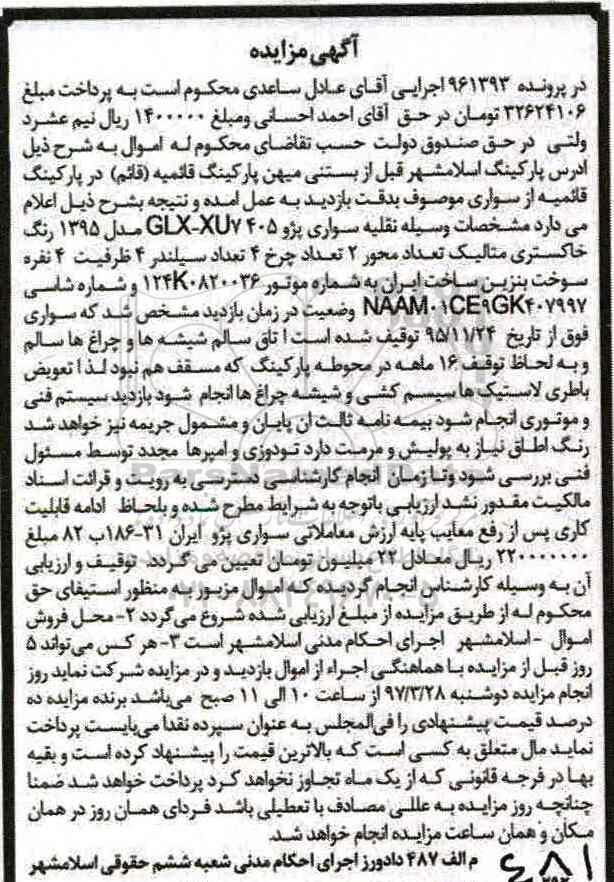 آگهی مزایده
در پرونده ۹۶۱۳۹۳ اجرایی آقای عادل ساعدی محکوم است به پرداخت مبلغ
۳۲۶۲۴۱۰۶ تومان در حق آقای احمد احسانی ومبلغ ۱۴۰۰۰۰۰ ریال نیم عشرد
ولتی در حق صندوق دولت حسب تقاضای محکوم له اموال به شرح ذیل
ادرس پارکینگ اسلامشهر قبل از بستنی میهن پارکینگ قائمیه (قائم) در پارکینگ
قائمیه از سواری موصوف بدقت بازدید به عمل امده و نتیجه بشرح ذیل اعلام
می دارد مشخصات وسیله نقلیه سواری پژو ۴۰۵ GLX-XU۷ مدل ۱۳۹۵ رنگ
خاکستری متالیک تعداد محور ۲ تعداد چرخ ۴ تعداد سیلندر ۴ ظرفیت ۴ نفره
سوخت بنزین ساخت ایران به شماره موتور ۱۲۴K۰۸۲۰۰۳۶ و شماره شاسی
NAAM۰۱CE۹GK۴۰۷۹۹۷ وضعیت در زمان بازدید مشخص شد که سواری
فوق از تاریخ ۹۵/۱۱/۲۴ توقیف شده است ا تاق سالم شیشه ها و چراغ ها سالم
و به لحاظ توقیف ۱۶ ماهه در محوطه پارکینگ که مسقف هم نبود لذا تعویض
باطری لاستیک ها سیسم کشی و شیشه چراغ ها انجام شود بازدید سیستم فنی
و موتوری انجام شود بیمه نامه ثالث ان پایان و مشمول جریمه نیز خواهد شد
رنگ اطاق نیاز به پولیش و مرمت دارد تودوزی و امپرها مجدد توسط مسئول
فنی بررسی شود وتا زمان انجام کارشناسی دسترسی به رویت و قرائت اسناد
مالکیت مقدور نشد ارزیابی باتوجه به شرایط مطرح شده و بلحاظ ادامه قابلیت
کاری پس از رفع معایب پایه ارزش معاملاتی سواری پژو ایران ۳۱-۱۸۶ب ۸۲ مبلغ
۲۲۰۰۰۰۰۰۰ ریال معادل ۲۲ میلیون تومان تعیین می گردد توقیف و ارزیابی
آن به وسیله کارشناس انجام گردیده که اموال مزبور به منظور استیفای حق
محکوم له از طریق مزایده از مبلغ ارزیابی شده شروع می‌گردد ۲-محل فروش
اموال -اسلامشهر اجرای احکام مدنی اسلامشهر است ۳-هر کس می‌تواند ۵
روز قبل از مزایده با هماهنگی اجراء از اموال بازدید و در مزایده شرکت نماید روز
انجام مزایده دوشنبه ۹۷/۳/۲۸ از ساعت ۱۰ الی ۱۱ صبح می‌باشد برنده مزایده ده
درصد قیمت پیشنهادی را فی‌المجلس به عنوان سپرده نقدا می‌بایست پرداخت
نماید مال متعلق به کسی است که بالاترین قیمت را پیشنهاد کرده است و بقیه
بها در فرجه قانونی که از یک ماه تجاوز نخواهد کرد پرداخت خواهد شد ضمنا
چنانچه روز مزایده به عللی مصادف با تعطیلی باشد فردای همان روز در همان
مکان و همان ساعت مزایده انجام خواهد شد.
م الف ۴۸۷ دادورز اجرای احکام مدنی شعبه ششم حقوقی اسلامشهر